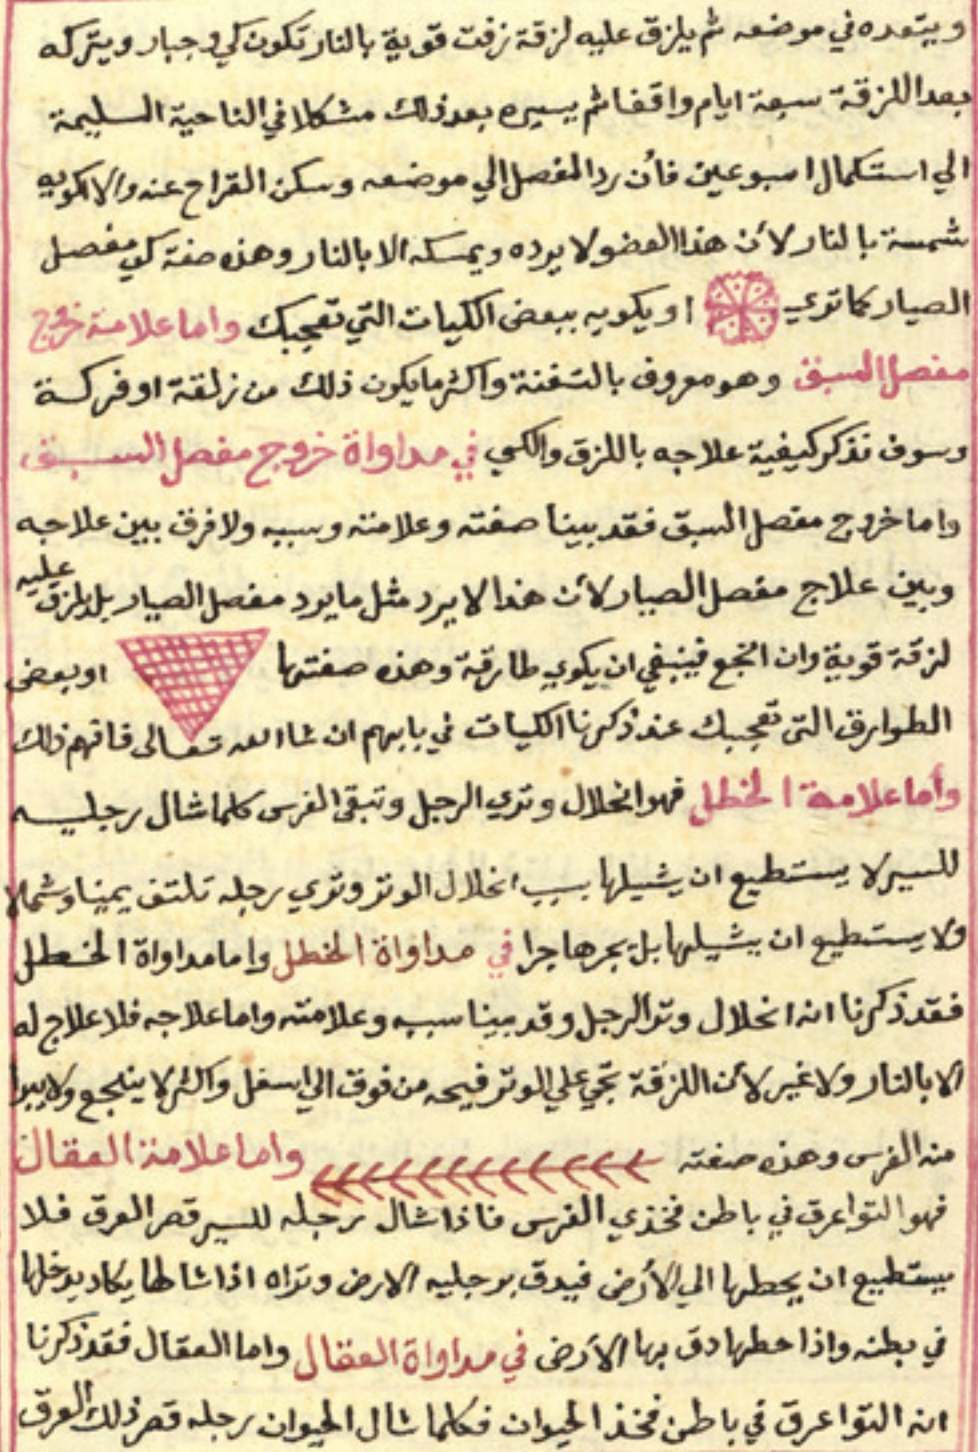 ويتعده في موضعه ثم يلزق عليه لزقة زفت قوية بالنار تكون كي وجبار ويتركه
بعد اللزقة سبعة ايام واقفا ثم يسيره بعد ذلك مشكلا في الناحية السليمة
الي استكمال اسبوعين فأن رد المفصل الي موضعه وسكن القراح عنه والا اكويه
شمسة بالنار لأن هذا العضو لا يرده ويمسكه الا بالنار وهذه صفة كي مفصل
الصيار كما تري او يكويه ببعض الكيات التي تعجبك واما علامة خروج
مفصل السبق وهو معروف بالتفنة واكثر ما يكون ذلك من زلقة او فركسة
وسوف نذكر كيفية علاجه باللزق والكي في مداواة خروج مفصل السبق
واما خروج مفصل السبق فقد بينا صفته وعلامته وسببه ولا فرق بين علاجه
وبين علاج مفصل الصيار لأن هذا لا يرد مثل ما يرد مفصل الصيار بل يلزق عليه
لزقة قوية وان انجع فينبغي ان يكوي طارقة وهذه صفتها او بعض
الطوارق التى تعجبك عند ذكرنا الكيات في بابهم ان شا الله تعالى فافهم ذلك
وأما علامة الخطل فهو انحلال وتري الرجل وتبقى الفرس كلما شال رجليه
للسير لا يستطيع ان يشيلها بسبب انحلال الوتر وتري رجله تلتف يمينا وشمالا
ولا يستطيع ان يشيلها بل يجرها جرا في مداواة الخطل واما مداواة الخطل
فقد ذكرنا انه انحلال وتر الرجل وقد بينا سببه وعلامته واما علاجه فلا علاج له
الا بالنار ولا غير لأن اللزقة تجي علي الوتر من فوق الي اسفل واكثر لا ينجع ولا يبرا
منه الفرس وهذه صفته واما علامة العقال
فهو التوا عرق في باطن فخذي الفرس فاذا شال رجله للسير قصر العرق فلا
يستطيع ان يحطها الي الأرض فيدق برجليه الارض وتراه اذا شالها يكاد يدخلها
في بطنه واذا حطها دق بها الأرض في مداواة العقال واما العقال فقد ذكرنا
انه التوا عرق في باطن فخذ الحيوان فكلما شال الحيوان رجله قصر ذلك العرق